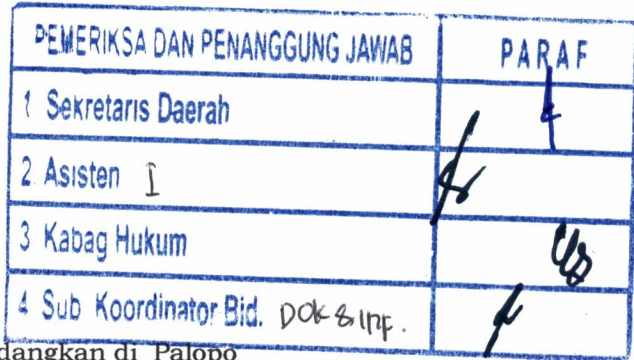 PEMERIKSA DAN PENANGGUNG JAWAB PARAF
1 Sekretaris Daerah
2. Asisten I
3 Kabag Hukum
4 Sub Koordinator Bid. DOK & INF.
dangkan di Palopo